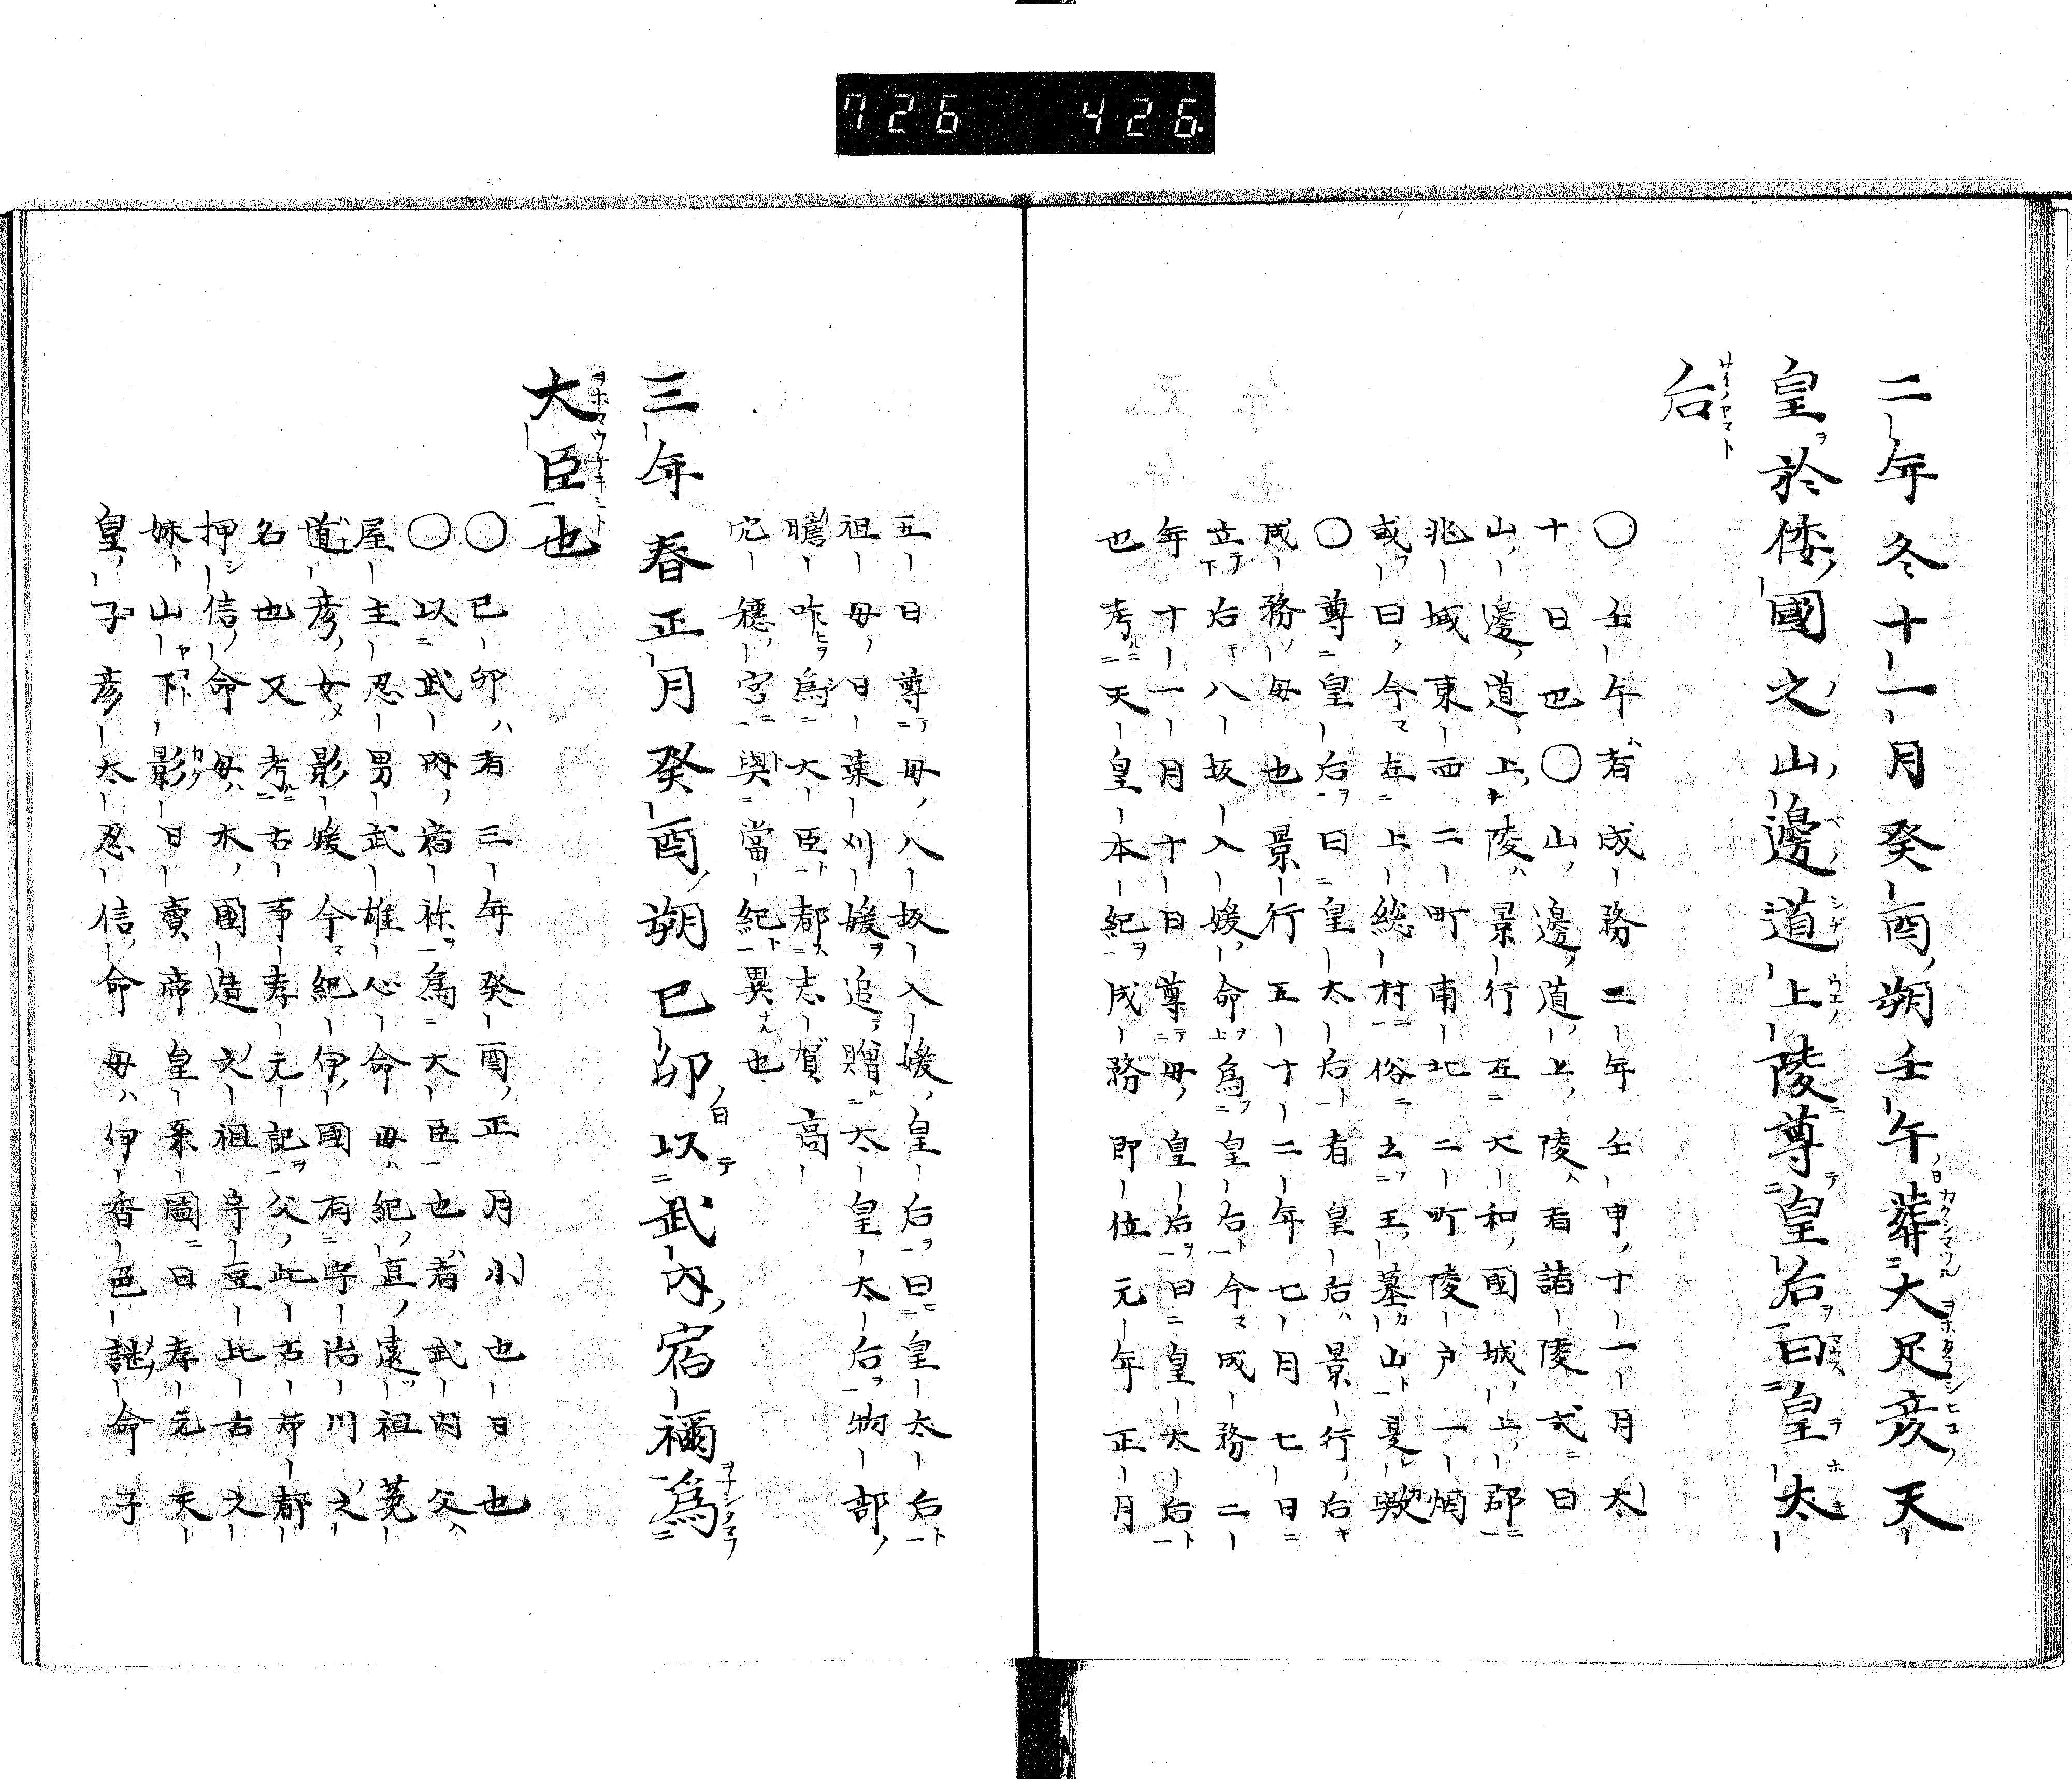 726 426
二年冬十一月癸酉朔壬午葬大足彦天
皇於倭國之山邊道上陵尊皇后曰皇太
后
○壬午者成務二年壬申十一月大
十日也○山邊道上陵者諸陵式曰
山邊道上陵景行在大和國城上郡
兆域東西二町南北二町陵戸一烟
或曰今在上総村俗土王墓山是歟
○尊皇后曰皇太后者皇后景行后
成務母也景行五十二年七月七日
立后八坂入媛命為皇后今成務二
年十一月十日尊母皇后曰皇太后
也考天皇本紀成務即位元年正月
五日尊母八坂入媛皇后曰皇太后
祖母日葉刈媛追贈太皇太后物部
膽咋為大臣都志賀高
穴穗宮與當紀異也
三年春正月癸酉朔已卯以武内宿禰為
大臣也
○已卯者三年癸酉正月小也日也
○以武内宿祢為大臣也者武内父
屋主忍男武雄心命母紀直遠祖莵
道彦女影媛今紀伊國有宇治川之
名也又考古事孝元記父此古布都
押信命母木國造之祖宇豆比古之
妹山下影日賣帝皇系圖曰孝元天
皇子彦太忍信命母伊香色謎命子